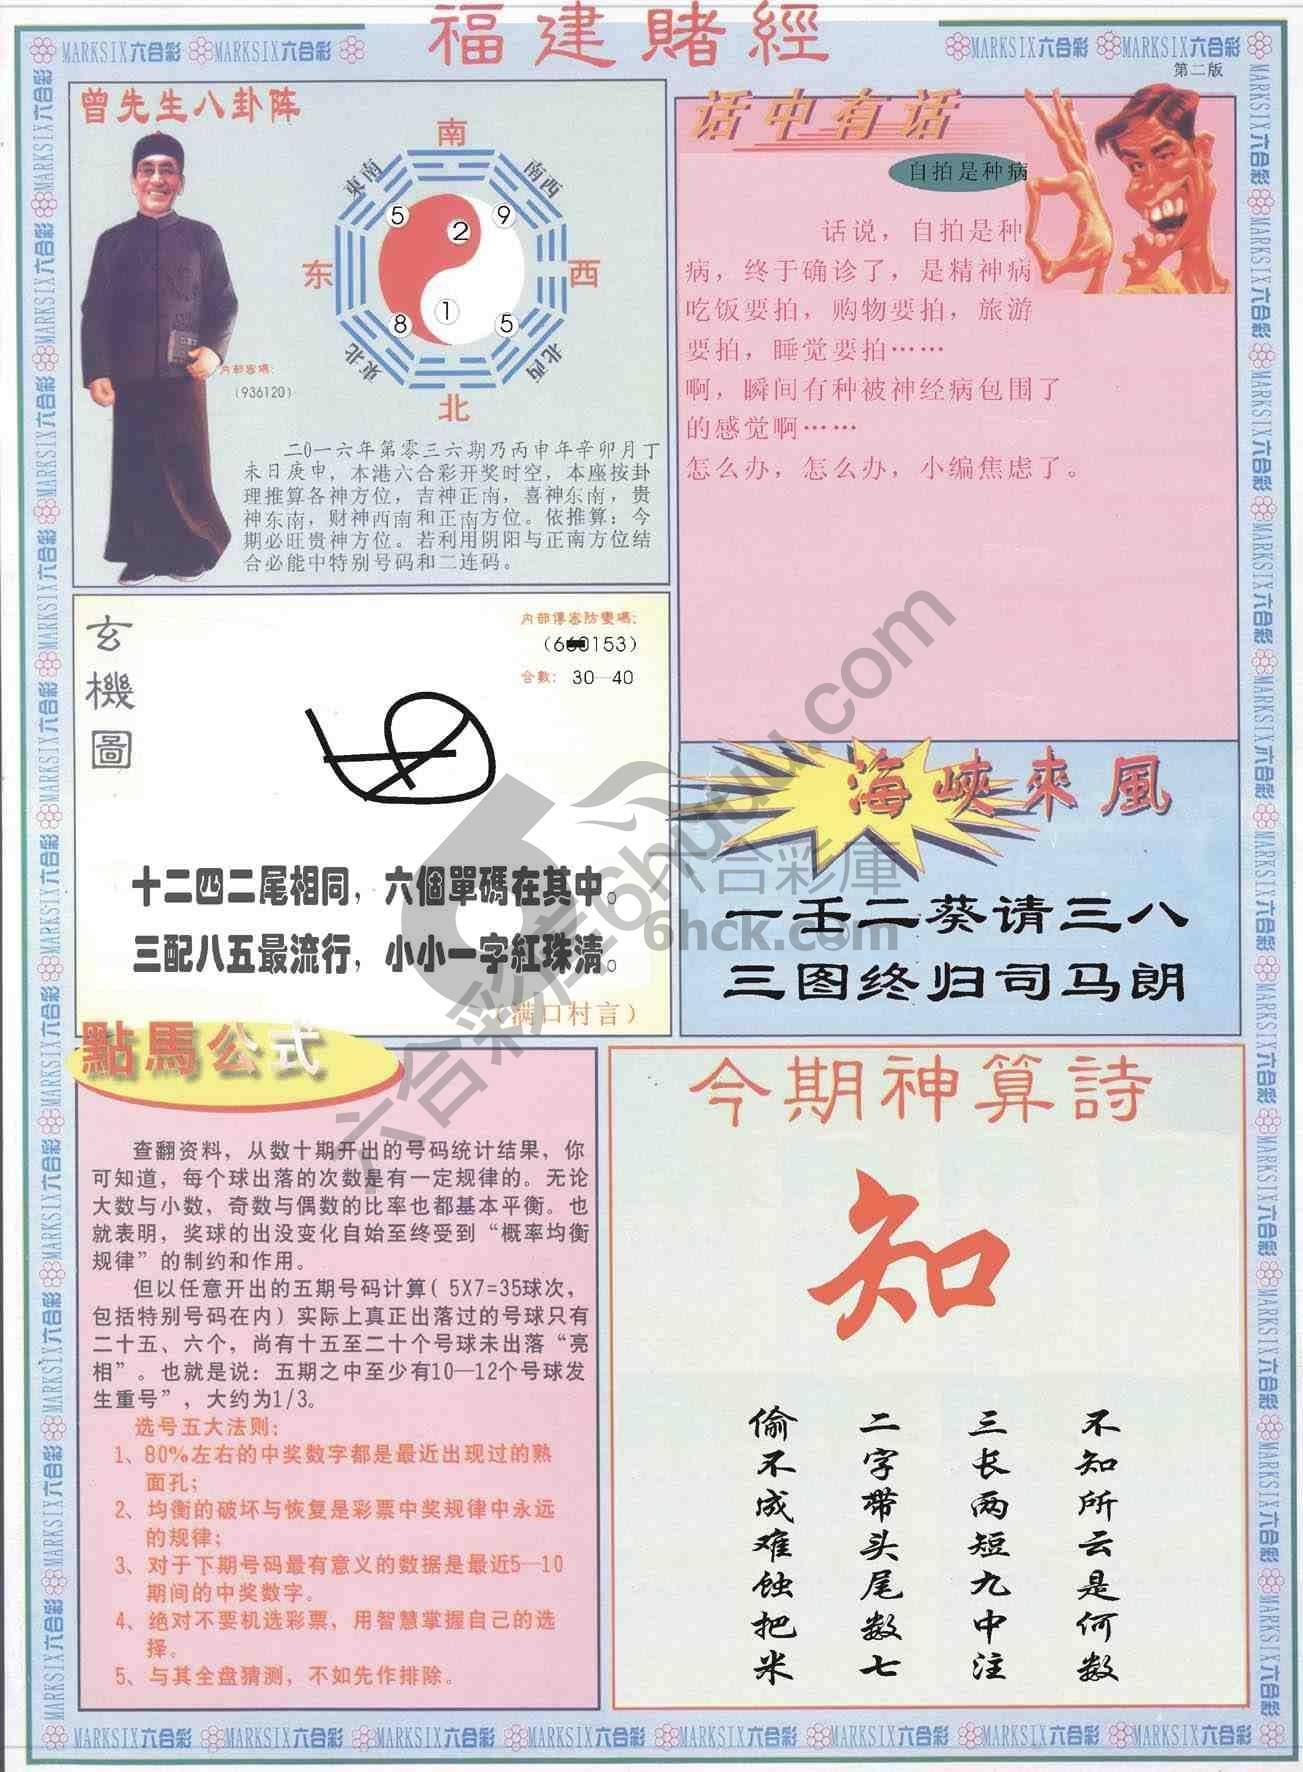 福建賭經
MARKSIX六合彩 MARKSIX六合彩
MARKSIX六合彩 MARKSIX六合彩
第二版
曾先生八卦阵
南
東南
南西
5
2
9
东
西
8
1
5
東北
北西
北
内部密碼：
(936120)
二0一六年第零三六期乃丙申年辛卯月丁
未日庚申，本港六合彩开奖时空，本座按卦
理推算各神方位，吉神正南，喜神东南，贵
神东南，财神西南和正南方位。依推算：今
期必旺贵神方位。若利用阴阳与正南方位结
合必能中特别号码和二连码。
话中有话
自拍是种病
话说，自拍是种
病，终于确诊了，是精神病
吃饭要拍，购物要拍，旅游
要拍，睡觉要拍……
啊，瞬间有种被神经病包围了
的感觉啊……
怎么办，怎么办，小编焦虑了。
玄機圖
内部傳密防變碼：
0153)
合數： 30—40
十二四二尾相同，六個單碼在其中。
三配八五最流行，小小一字紅珠清。
（满口村言）
海峽來風
一壬二葵请三八
三图终归司马朗
六合彩庫
6hck.com
點馬公式
查翻资料，从数十期开出的号码统计结果，你
可知道，每个球出落的次数是有一定规律的。无论
大数与小数，奇数与偶数的比率也都基本平衡。也
就表明，奖球的出没变化自始至终受到“概率均衡
规律”的制约和作用。
但以任意开出的五期号码计算( 5X7=35球次，
包括特别号码在内）实际上真正出落过的号球只有
二十五、六个，尚有十五至二十个号球未出落“亮
相”。也就是说：五期之中至少有10—12个号球发
生重号”，大约为1/3。
选号五大法则：
1、80%左右的中奖数字都是最近出现过的熟
面孔；
2、均衡的破坏与恢复是彩票中奖规律中永远
的规律；
3、对于下期号码最有意义的数据是最近5—10
期间的中奖数字。
4、绝对不要机选彩票，用智慧掌握自己的选
择。
5、与其全盘猜测，不如先作排除。
今期神算詩
知
不知所云是何数
三长两短九中注
二字带头尾数七
偷不成难蚀把米
MARKSIX六合彩 MARKSIX六合彩 MARKSIX六合彩 MARKSIX六合彩 MARKSIX六合彩 MARKSIX六合彩 MARKSIX六合彩 MARKSIX六合彩